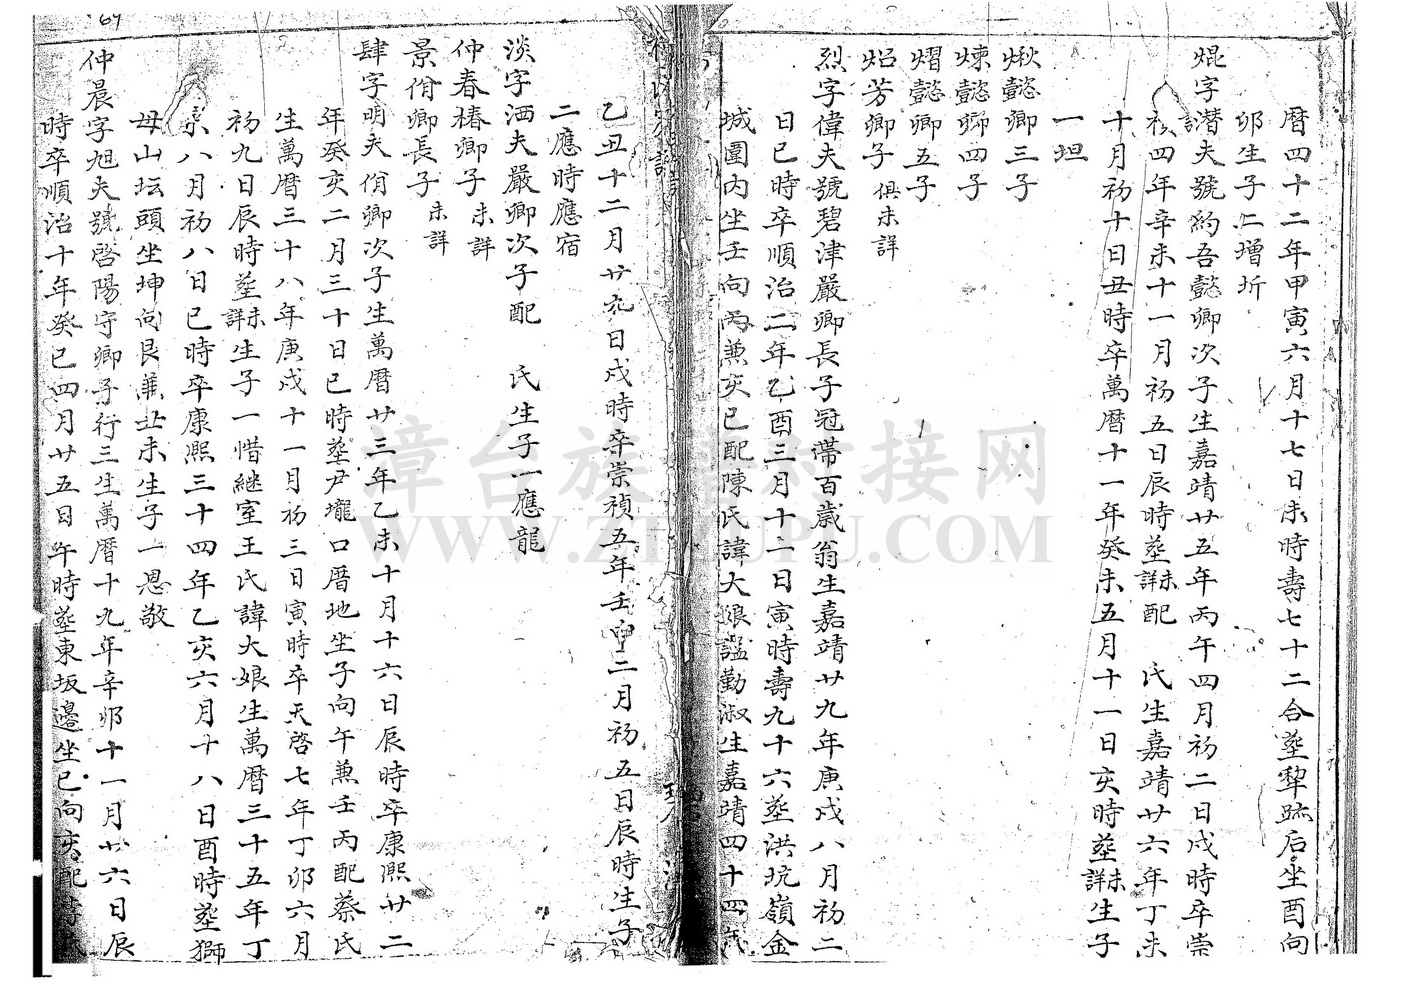 曆四十二年甲寅六月十七日未時壽七十二合塟犂䟽后坐酉向
卯生子仁增圻
焜字潜夫號約吾懿卿次子生嘉靖廿五年丙午四月初二日戌時卒崇
禎四年辛未十一月初五日辰時塟未詳配 氏生嘉靖廿六年丁未
十月初十日丑時卒萬曆十一年癸未五月十一日亥時塟未詳生子
一坦
煍懿卿三子
煉懿卿四子
熠懿卿五子
炤芳卿子俱未詳
烈字偉夫號碧津嚴卿長子冠帶百歲翁生嘉靖廿九年庚戌八月初二
日巳時卒順治二年乙酉三月十二日寅時壽九十六塟洪坑嶺金
城圍內坐壬向丙兼亥巳配陳氏諱大娘謚勤淑生嘉靖四十四年
乙丑十二月廿九日戌時卒崇禎五年壬申二月初五日辰時生子
二應時應宿
淡字洒夫嚴卿次子配 氏生子一應龍
仲春椿卿子未詳
景佾卿長子未詳
肆字明夫佾卿次子生萬曆廿三年乙未十月十六日辰時卒康熙廿二
年癸亥二月三十日巳時塟尹壠口厝地坐子向午兼壬丙配蔡氏
生萬曆三十八年庚戌十一月初三日寅時卒天啓七年丁卯六月
初九日辰時塟未詳生子一惜継室王氏諱大娘生萬曆三十五年丁
未八月初八日巳時卒康熙三十四年乙亥六月十八日酉時塟獅
母山坛頭坐坤向艮兼丑未生子一恩敬
仲晨字旭夫號啓陽守卿子行三生萬曆十九年辛卯十一月廿六日辰
時卒順治十年癸巳四月廿五日午時塟東坂邊坐巳向亥配李氏
69
漳台族譜對接網
WWW.ZTZUPU.COM